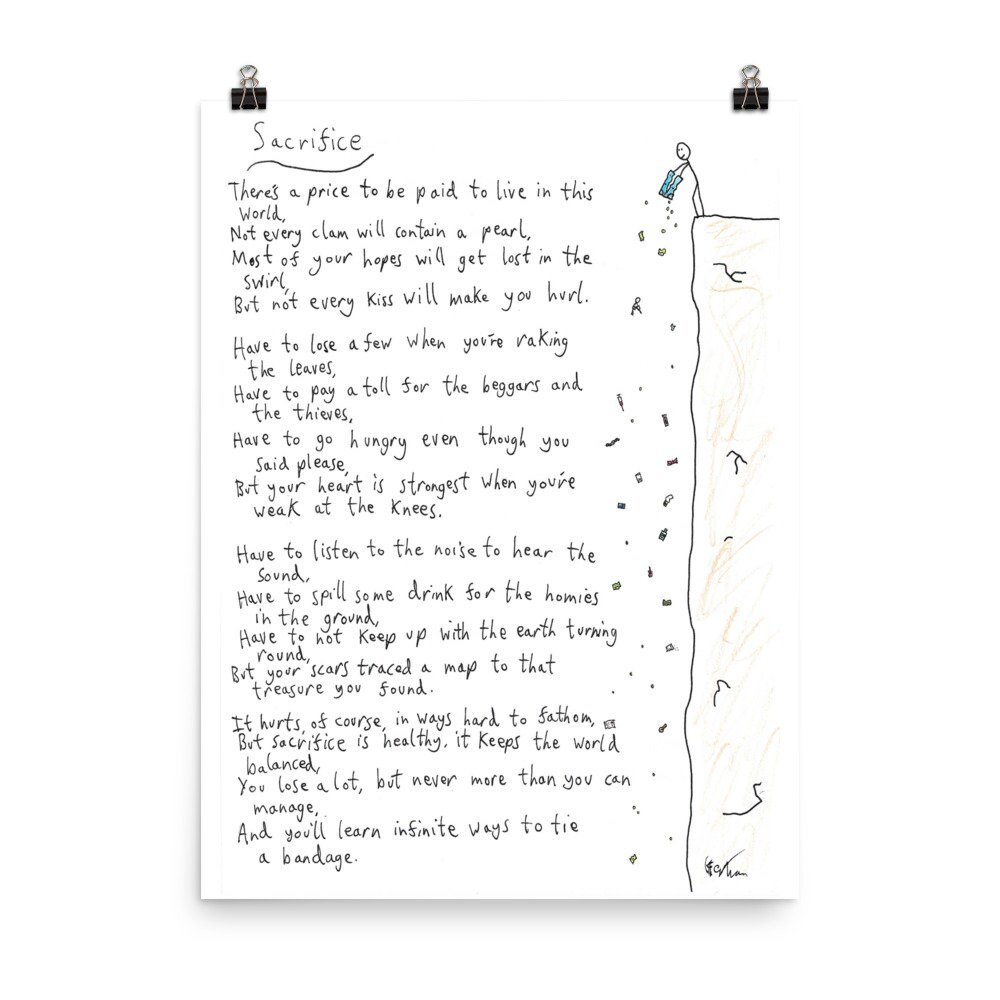 Sacrifice
There's a price to be paid to live in this
world,
Not every clam will contain a pearl,
Most of your hopes will get lost in the
swirl,
But not every kiss will make you hurl.
Have to lose a few when you're raking
the leaves,
Have to pay a toll for the beggars and
the thieves,
Have to go hungry even though you
said please,
But your heart is strongest when you're
weak at the knees.
Have to listen to the noise to hear the
sound,
Have to spill some drink for the homies
in the ground,
Have to not keep up with the earth turning
round,
But your scars traced a map to that
treasure you found.
It hurts, of course, in ways hard to fathom,
But sacrifice is healthy. it keeps the world
balanced,
You lose a lot, but never more than you can
manage,
And you'll learn infinite ways to tie
a bandage.